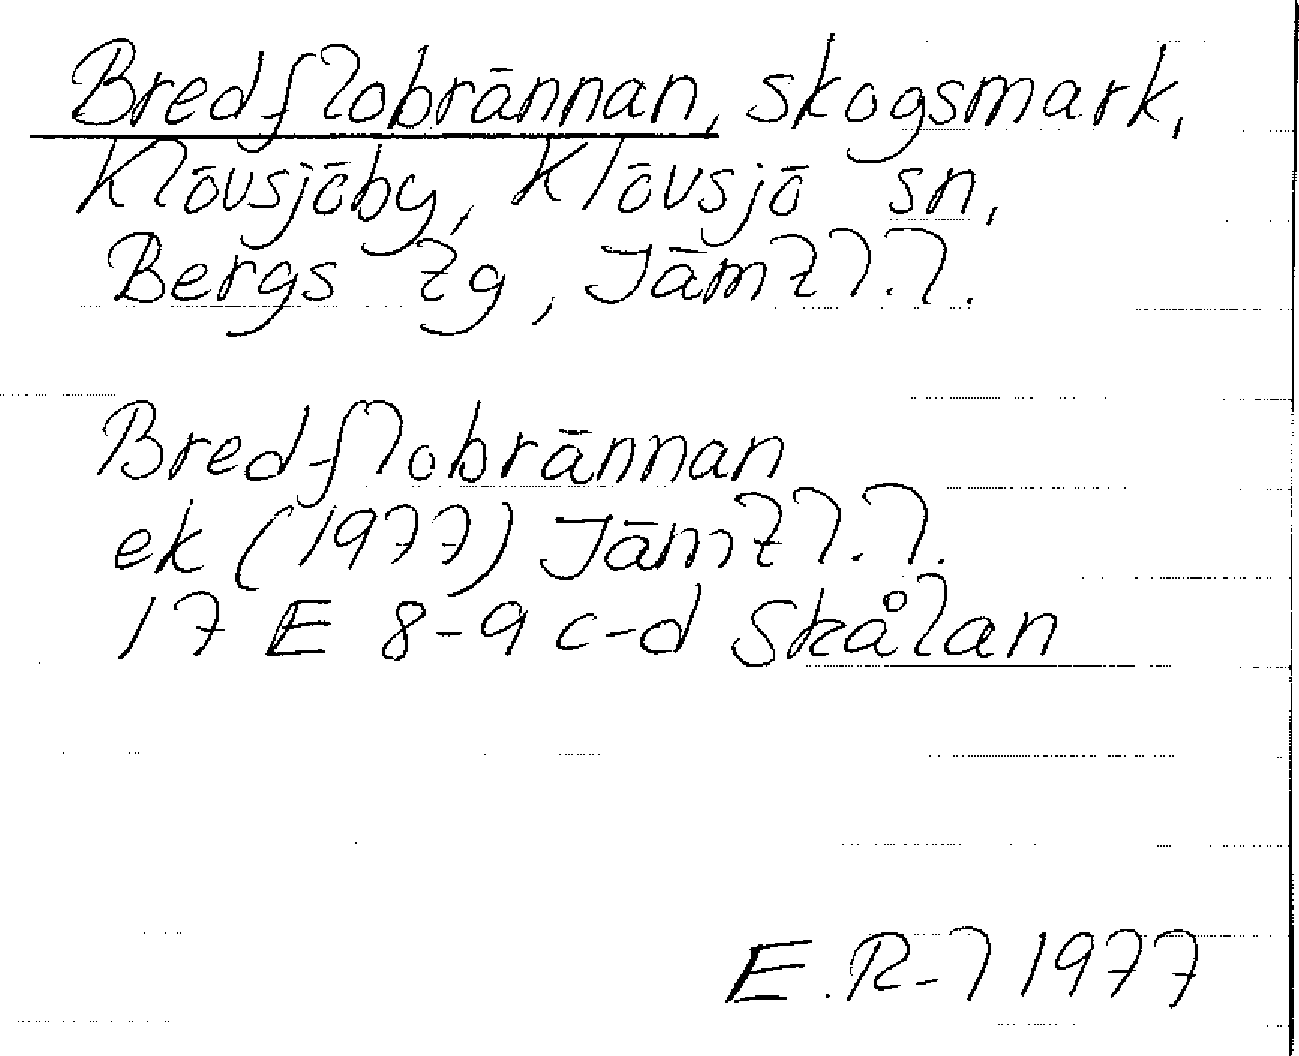 Bredflobrännan, skogsmark,
Klövsjöby, Klövsjö sn,
Bergs tg, Jämtl.l.
Bredflobrännan
ek (1977) Jämtl.l.
17 E 8-9 c-d Skålan
E.R-l 1977